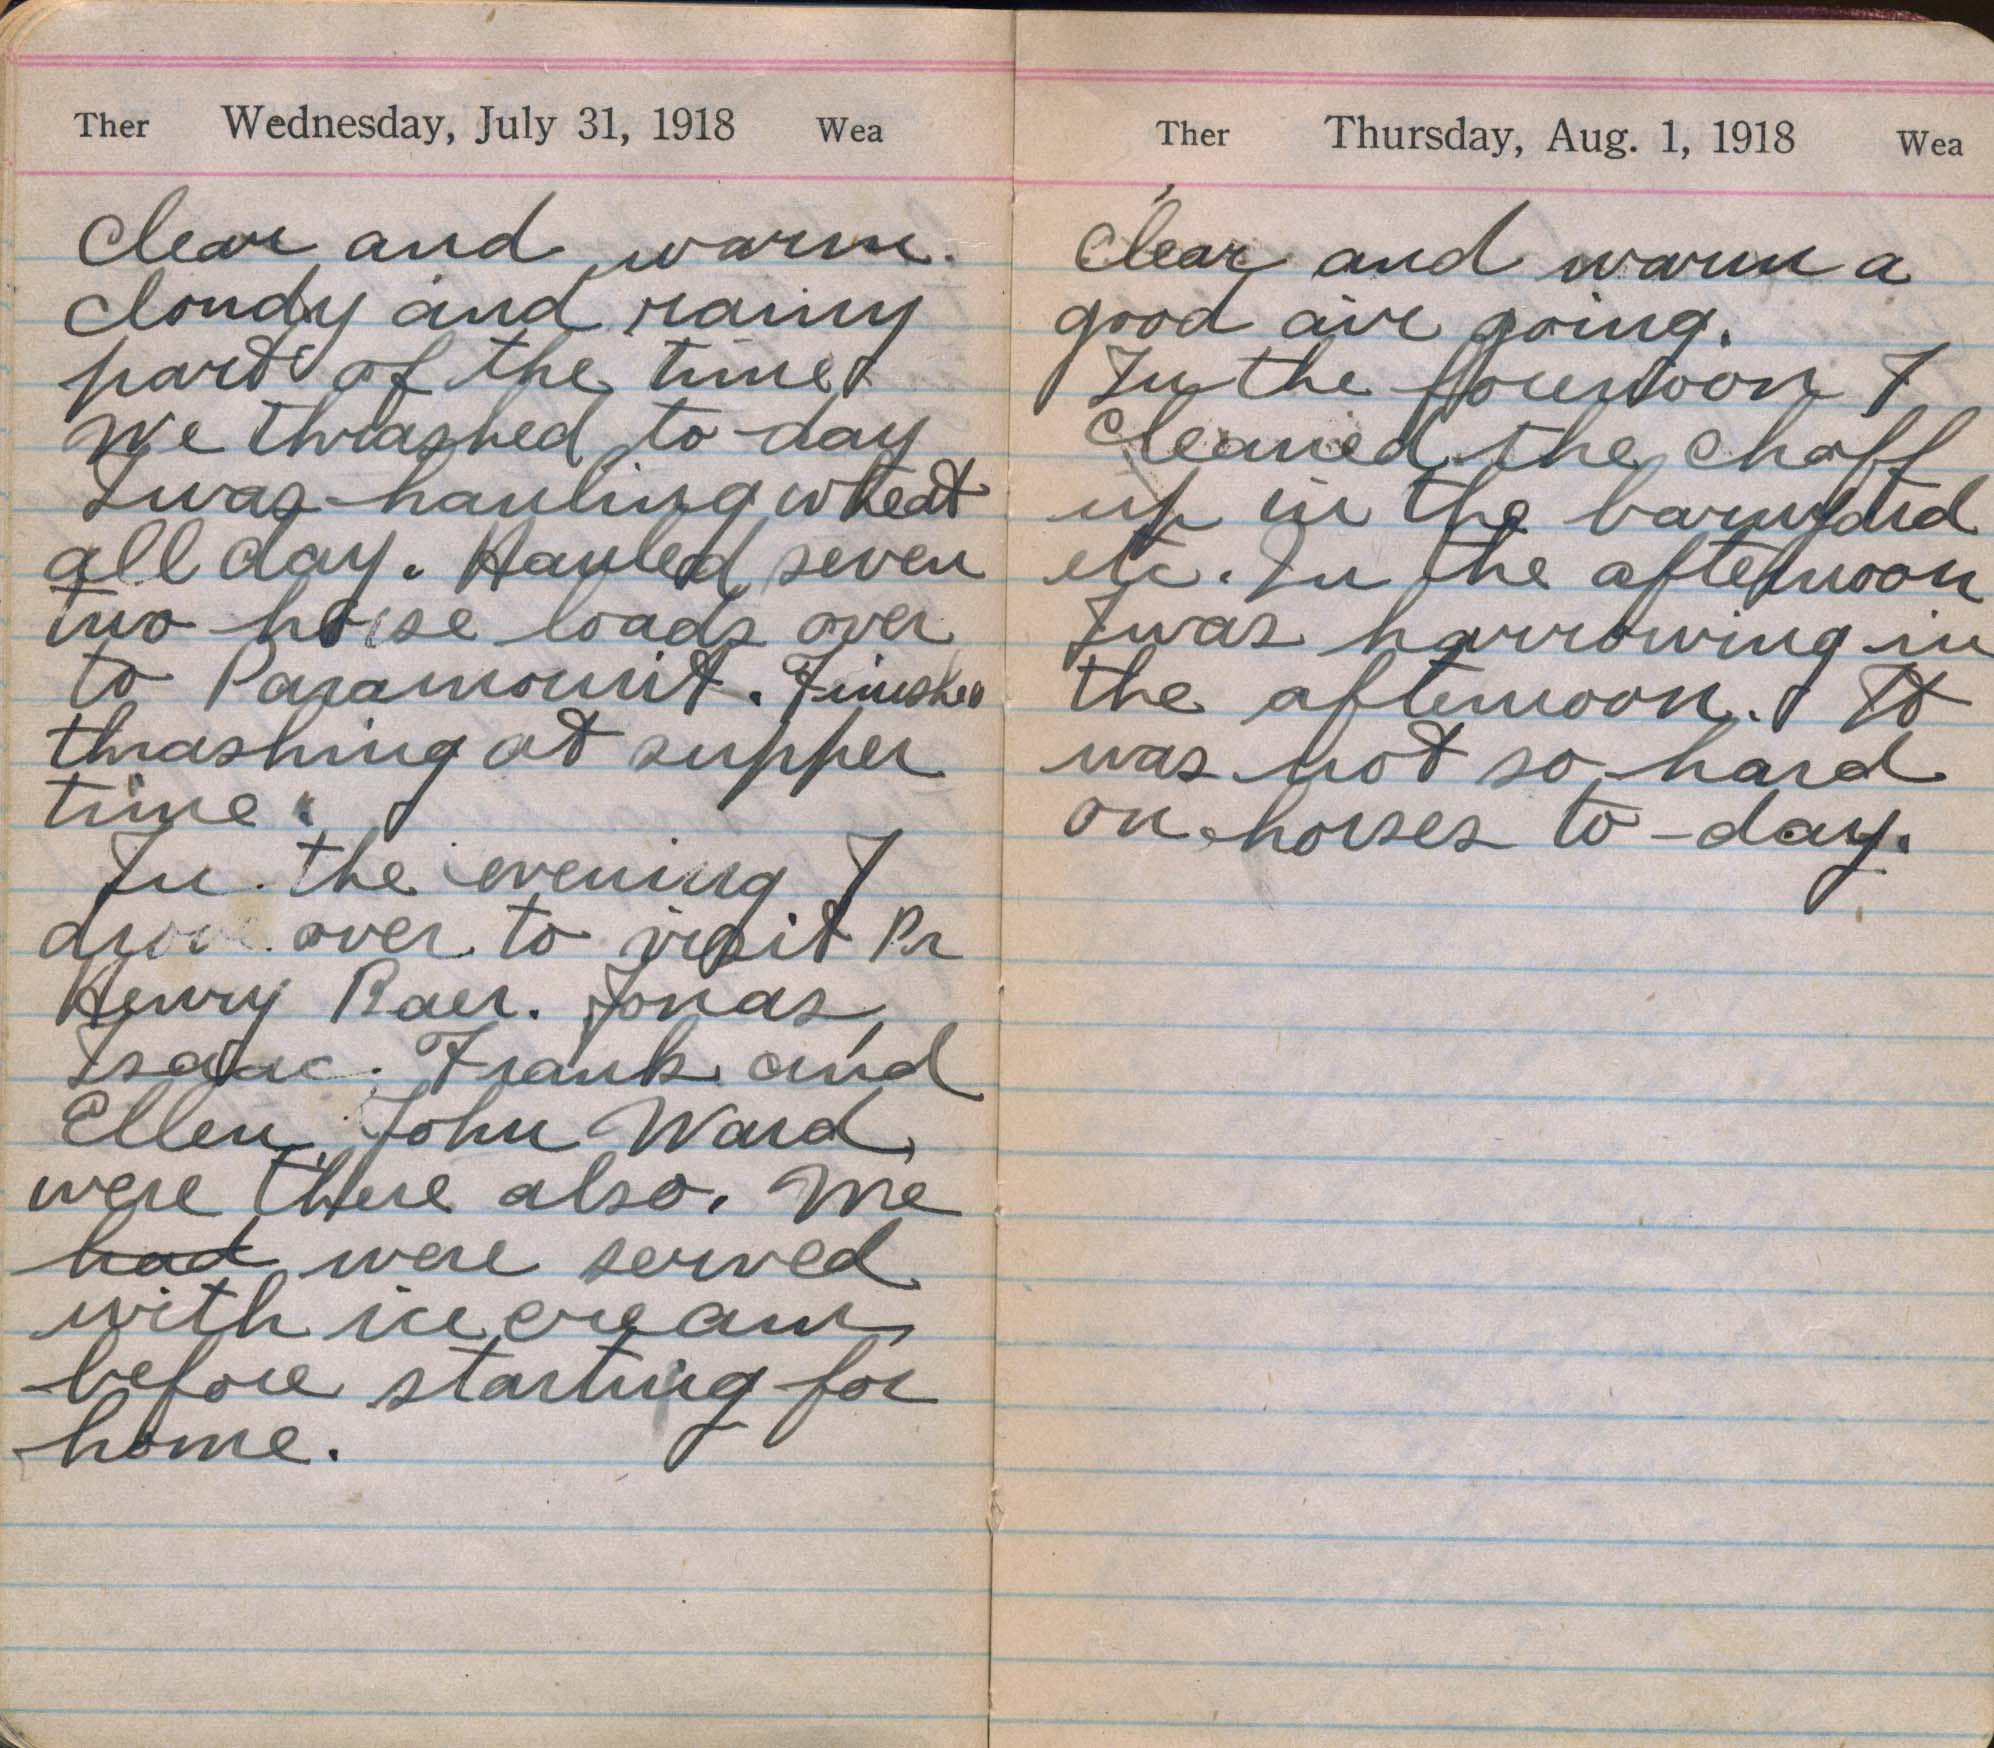 Ther Wednesday, July 31, 1918 Wea
Clear and warm.
Cloudy and rainy
part of the time
We thrashed to-day
I was hauling wheat
all day. Hauled seven
two horse loads over
to Paramount. Finished
thrashing at supper
time.
In the evening I
drove over to visit Pr
Henry Baer. Jonas,
Isaac. Frank and
Ellen, John Ward,
were there also. We
had were served
with ice cream
before starting for
home.
Ther Thursday, Aug. 1, 1918 Wea
Clear and warm a
good air going.
In the forenoon I
cleaned the chaff
up in the barnyard
etc. In the afternoon
I was harrowing in
the afternoon. It
was not so hard
on horses to-day.